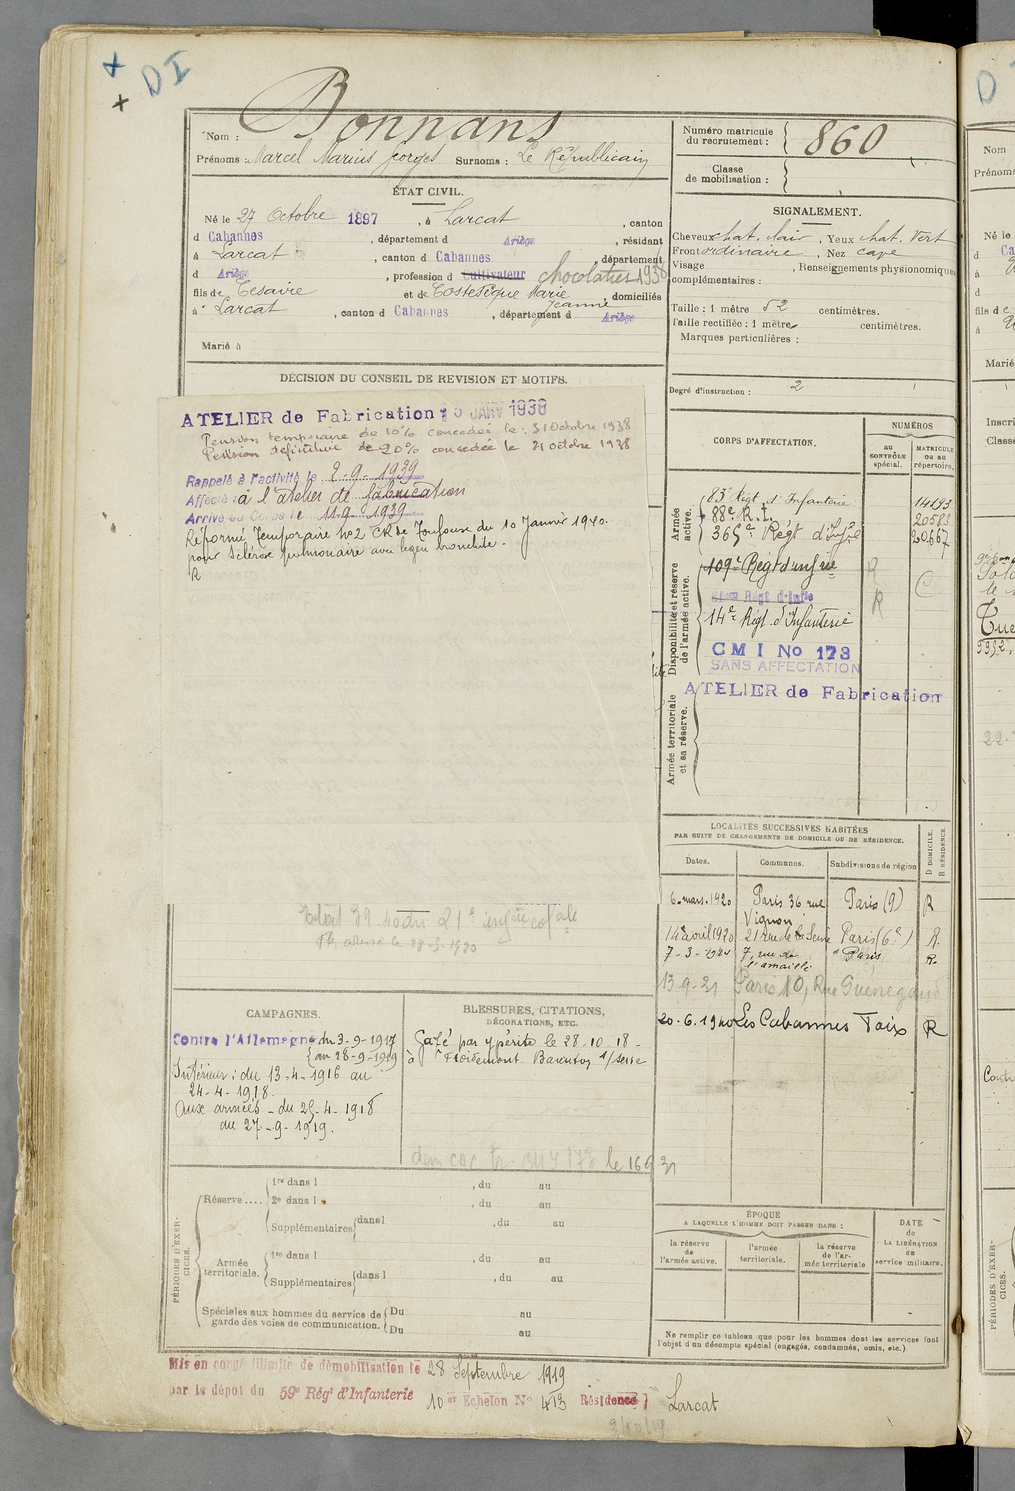 DI
Nom : Bonnans
Prénoms : Marcel Marius Georges Surnoms : Le Républicain
Numéro matricule
du recrutement : 860
Classe
de mobilisation :
ÉTAT CIVIL.
Né le 27 Octobre 1897, à Larcat, canton
d Cabannes, département d Ariège, résidant
à Larcat, canton d Cabannes, département
d Ariège, profession d Cultivateur chocolatier 1938
fils de Cesaire et de Marie Jeanne, domiciliés
à Larcat, canton d Cabannes, département d Ariège
Marié à
SIGNALEMENT.
Cheveux chat. clair, Yeux chat. vert
Front ordinaire, Nez cave
Visage , Renseignements physionomiques
complémentaires :
Taille : 1 mètre 52 centimètres.
Taille rectifiée : 1 mètre centimètres.
Marques particulières :
Degré d'instruction : 2
DÉCISION DU CONSEIL DE REVISION ET MOTIFS.
ATELIER de Fabrication JANV 1938
Pension temporaire de 10% concedée le : 31 Octobre 1938
Pension définitive de 20% concedée le 31 octobre 1938
Rappelé à l'activité le 2-9-1939
Affecté à l'atelier de fabrication
Arrivé au Corps le 11-9-1939
Réformé Temporaire n°2 CR de Toulouse du 10 Janvier 1940.
pour Sclérose pulmonaire avec legère bronchite.
R
CORPS D'AFFECTATION.
NUMÉROS
au CONTRÔLE spécial.
MATRICULE ou au répertoire.
Armée active.
83e Régt d'Infanterie 14193
88e R.I. 20583
365e Régt d'Infie 20667
Disponibilité et réserve de l'armée active.
109e Régt d'infie R
Régt d'Infie R
14e Régt d'Infanterie
CMI No 173
SANS AFFECTATION
ATELIER de Fabrication
Armée territoriale et sa réserve.
LOCALITÉS SUCCESSIVES HABITÉES
PAR SUITE DE CHANGEMENTS DE DOMICILE OU DE RÉSIDENCE.
Dates. Communes. Subdivisions de région D DOMICILE. R RÉSIDENCE.
6. mars. 1920 Paris 36 rue Vignon Paris (9) R
14 avril 1920 21 rue de la Seine Paris (6e) R.
7-3-1921 7, rue de Paris R.
13-9-31 Paris 10, Rue Guenegaud
20.6.1940 Les Cabannes Foix R
CAMPAGNES.
Contre l'Allemagne du 3-9-1917
au 28-9-1919
Intérieur : du 13-4-1916 au
24-4-1918.
Aux armées - du 25-4-1918
au 27-9-1919.
BLESSURES, CITATIONS,
DÉCORATIONS, ETC.
Gazé par ypérite le 28-10-18-
à Froidmont
le 16 9 31
PÉRIODES D'EXERCICES.
Réserve .... 1re dans l , du au
2e dans l , du au
Supplémentaires dans l , du au
Armée territoriale. 1re dans l , du au
Supplémentaires dans l , du au
Spéciales aux hommes du service de
garde des voies de communication. Du au
Du au
ÉPOQUE
A LAQUELLE L'HOMME DOIT PASSER DANS :
la réserve de l'armée active.
l'armée territoriale.
la réserve de l'armée territoriale
DATE de LA LIBÉRATION du service militaire.
Ne remplir ce tableau que pour les hommes dont les services font
l'objet d'un décompte spécial (engagés, condamnés, omis, etc.).
Mis en congé illimité de démobilisation le 28 Septembre 1919
par le dépôt du 59e Régt d'Infanterie 10 Echelon No 413 Résidence Larcat